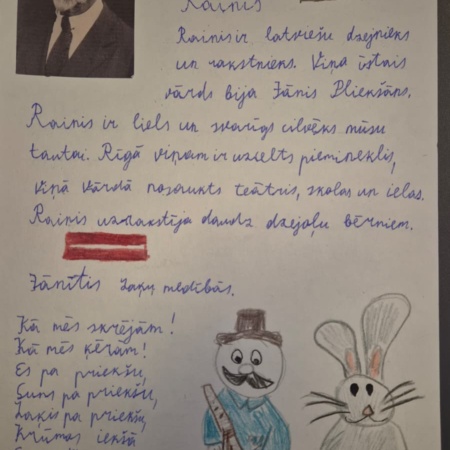 Rainis
Rainis ir latviešu dzejnieks
un rakstnieks. Viņa īstais
vārds bija Jānis Pliekšāns.
Rainis ir liels un svarīgs cilvēks mūsu
tautai. Rīgā viņam ir uzcelts piemineklis,
viņā vārdā nosaukts teātris, skolas un ielas.
Rainis uzrakstīja daudz dzejoļu bērniem.
Jānītis zaķu medībās.
Kā mēs skrējām!
Kā mēs ķērām!
Es pa priekšu,
Suns pa priekšu,
Zaķis pa priekšu,
Krūmos iekšā